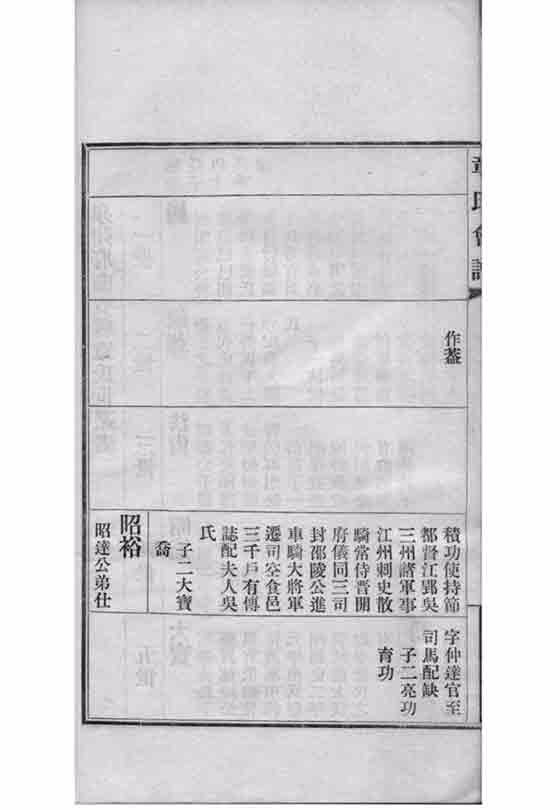 章氏會譜
作葢
積功使持節
都督江郢吳
三州諸軍事
江州刺史散
騎常侍晉開
府儀同三司
封邵陵公進
車騎大將軍
遷司空食邑
三千戶有傳
誌配夫人吳
氏
子二大寶
喬
昭裕
昭達公弟仕
字仲達官至
司馬配缺
子二亮功
育功